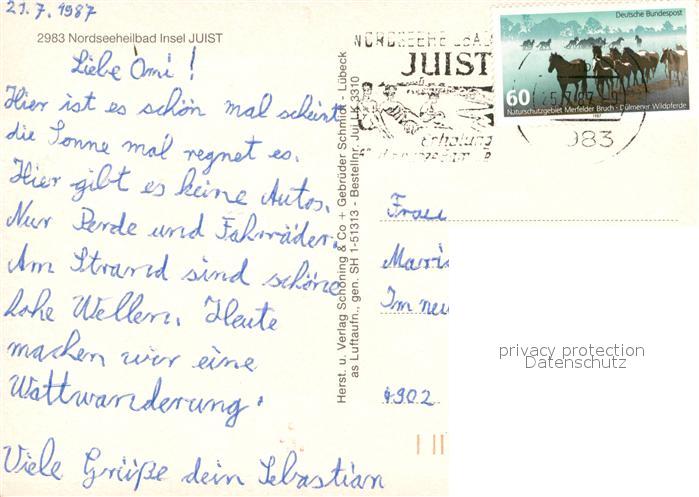 21.7.1987
2983 Nordseeheilbad Insel JUIST
Liebe Omi!
Hier ist es schön mal scheint
die Sonne mal regnet es.
Hier gibt es keine Autos.
Nur Perde und Fahrräder.
Am Strand sind schöne
hohe Wellen. Heute
machen wir eine
Wattwanderung.
Viele Grüße dein Sebastian
Herst. u. Verlag Schöning & Co + Gebrüder Schmidt - Lübeck
as Luftaufn., gen. SH 1-51313 - Bestellnr. Jui LK 3310
JUIST
Erholung
983
Deutsche Bundespost
60
Naturschutzgebiet Merfelder Bruch · Dülmener Wildpferde
1987
Frau
Im neu
4902
privacy protection
Datenschutz